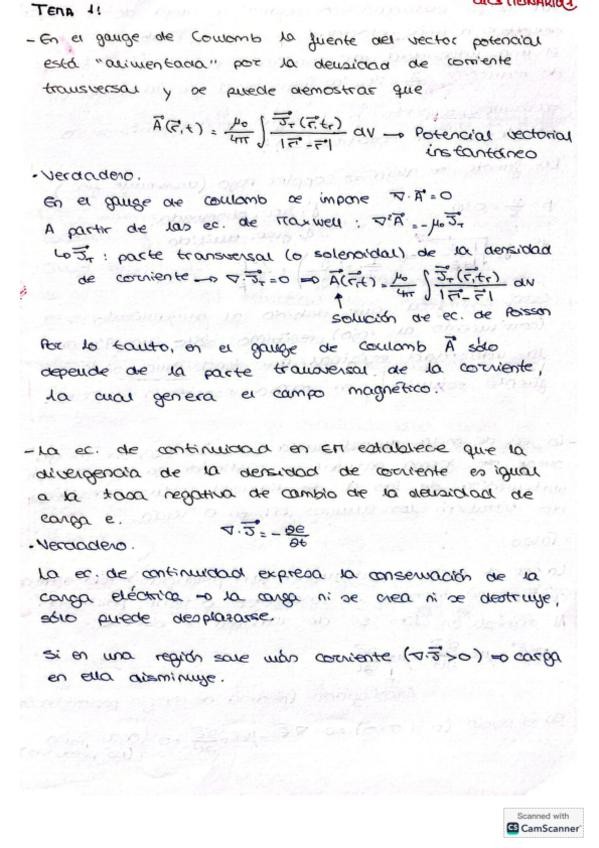 TEMA 1:
CUESTIONARIO 1
- En el gauge de Coulomb la fuente del vector potencial
está "alimentada" por la densidad de corriente
transversal y se puede demostrar que
A⃗(r⃗,t) = μ₀/4π ∫ J⃗_T(r⃗,t_r)/|r⃗'-r⃗| dV → Potencial vectorial
instantáneo
• Verdadero.
En el gauge de Coulomb se impone ∇·A⃗ = 0
A partir de las ec. de Maxwell: ∇²A⃗ = -μ₀ J⃗_T
↳ J⃗_T : parte transversal (o solenoidal) de la densidad
de corriente → ∇·J⃗_T = 0 ⇒ A⃗(r⃗,t) = μ₀/4π ∫ J⃗_T(r⃗,t_r)/|r⃗'-r⃗| dV
↑
solución de ec. de Poisson
Por lo tanto, en el gauge de Coulomb A⃗ sólo
depende de la parte transversal de la corriente,
la cual genera el campo magnético.
- La ec. de continuidad en EM establece que la
divergencia de la densidad de corriente es igual
a la tasa negativa de cambio de la densidad de
carga ρ.
∇·J⃗ = - ∂ρ/∂t
• Verdadero.
La ec. de continuidad expresa la conservación de la
carga eléctrica → la carga ni se crea ni se destruye,
sólo puede desplazarse.
Si en una región sale más corriente (∇·J⃗ > 0) ⇒ carga
en ella disminuye.
Scanned with
CS CamScanner